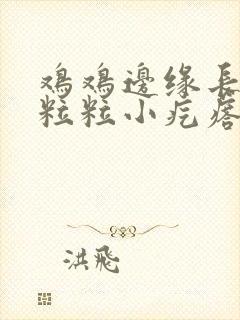 鸡鸡邊缘長
粒粒小疙瘩
洪飛